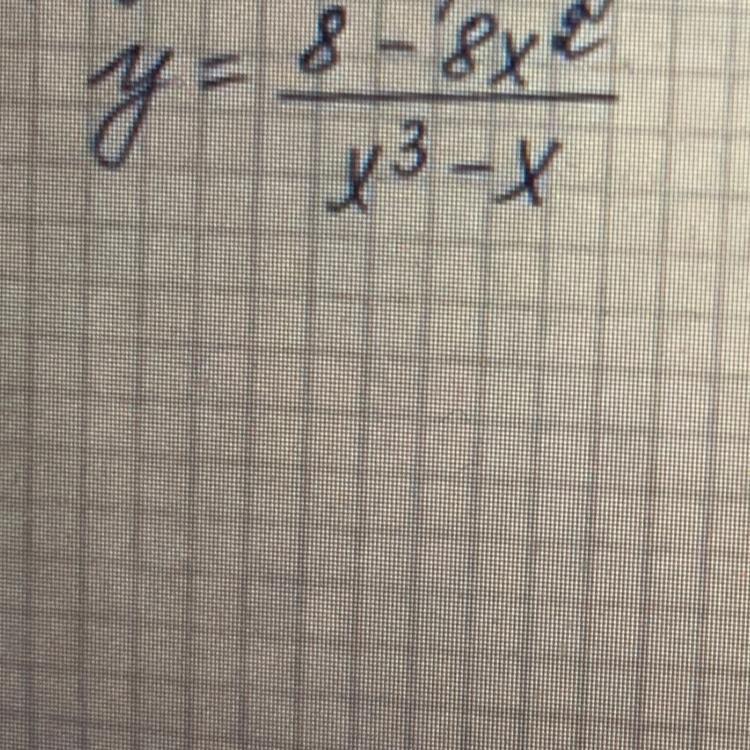 y = (8 - 8x²)/(x³ - x)